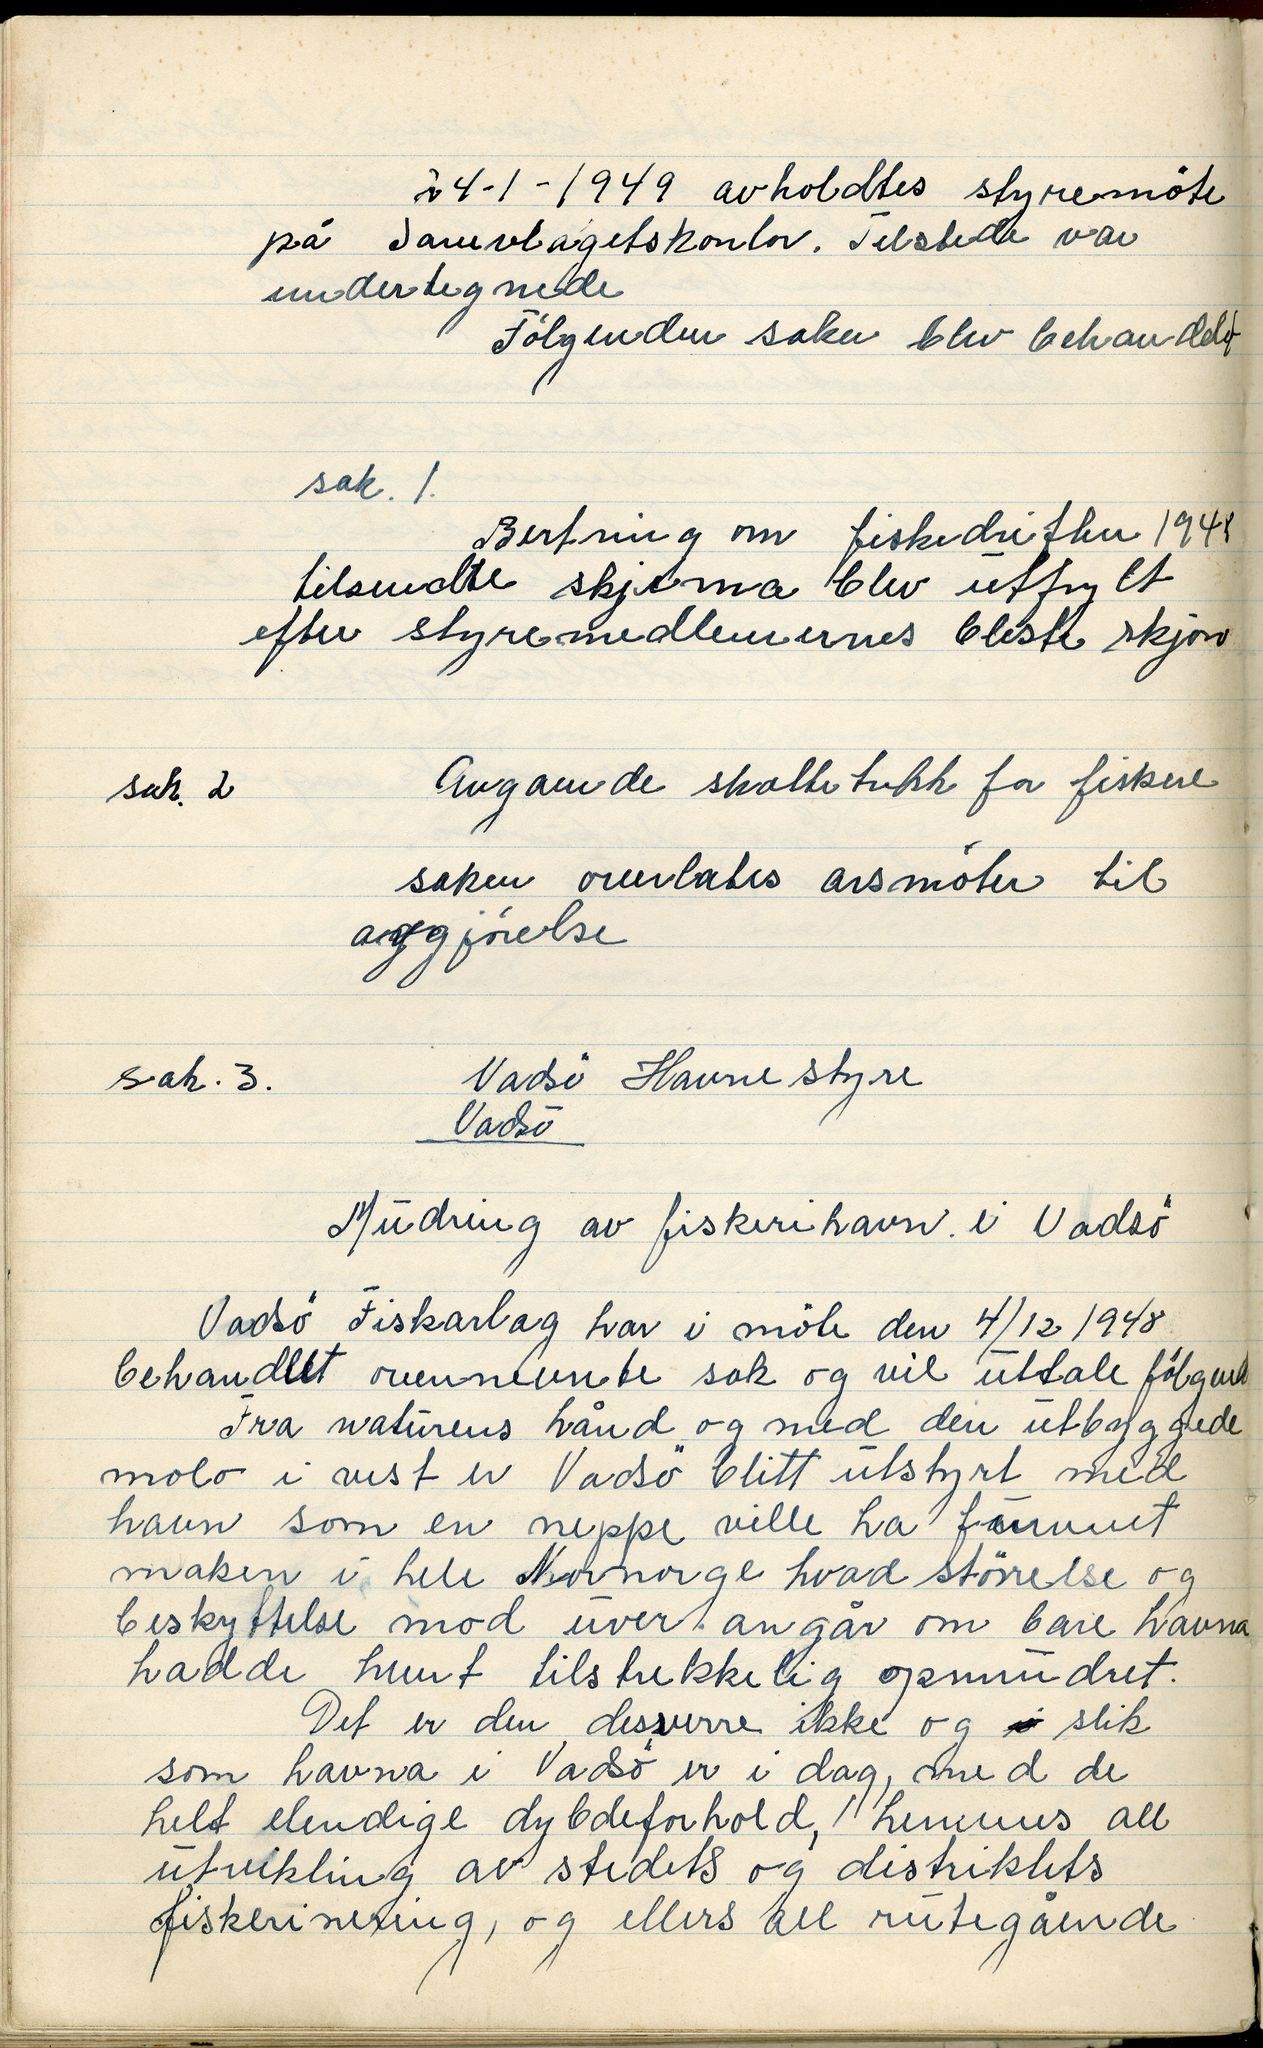 24-1-1949 avholdtes styremöte
på Samvlagetskontor. Tilstede var
undertegnede
Fölgenden saker blev behandlet
sak. 1.
Bertning om fiskedriften 1948
tilsendte skjema blev utfylt
efter styremedlemernes beste skjön
sak. 2
Angaende skattetrekk for fiskere
saken overlates arsmöter til
avgjörelse
sak. 3.
Vadsö Havnestyre
Vadsö
Mudring av fiskerihavn i Vadsö
Vadsö Fiskarlag har i möte den 4/12 1948
behandlet ovennevnte sak og vil uttale fölgend
Fra naturens hånd og med den utbyggede
molo i vest er Vadsö blitt utstyrt med
havn som en neppe ville ha funnet
maken i hele Nornorge hvad störrelse og
beskyttelse mod uver angår om bare havna
hadde hvert tilstrekkelig opmudret.
Det er den desverre ikke og slik
som havna i Vadsö er i dag, med de
helt elendige dybdeforhold, hemmes all
utvikling av stedets og distriktets
fiskerinering, og ellers all rutegående